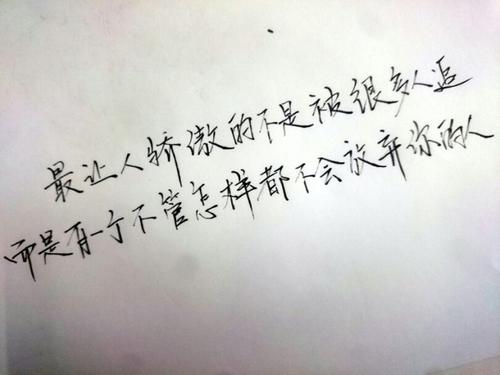 最让人骄傲的不是被很多人追
而是有一个不管怎样都不会放弃你的人